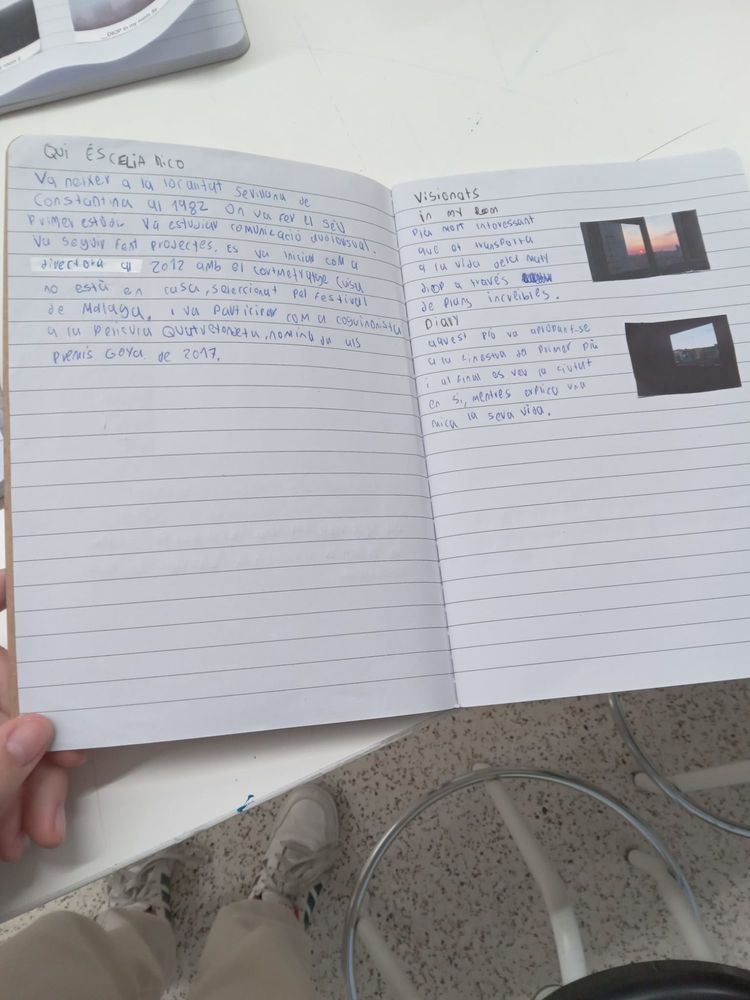 ...DIOP in my room 59
QUI ÉS CELIA RICO
Va neixer a la locanitat Sevillana de
Constantina al 1982 On va fer el seu
primer estudi. Va estudiar comunicació audiovisual.
Va seguir fent projectes. Es va iniciar com a
directora al 2012 amb el cortmetratge Luisa
no està en casa, seleccionat pel festival
de Malaga. i va participar com a coguionista
a la pelicula Quatretondeta, nomina da als
premis GOYA de 2017.
Visionats
in my Room
Pla molt interessant
que et transporta
a la vida dela maty
diop a través
de plans increibles.
Diary
aquest pla va apropant-se
a la finestra del primer pla
i al final es veu la ciutat
en si, mentres explica una
mica la seva vida.